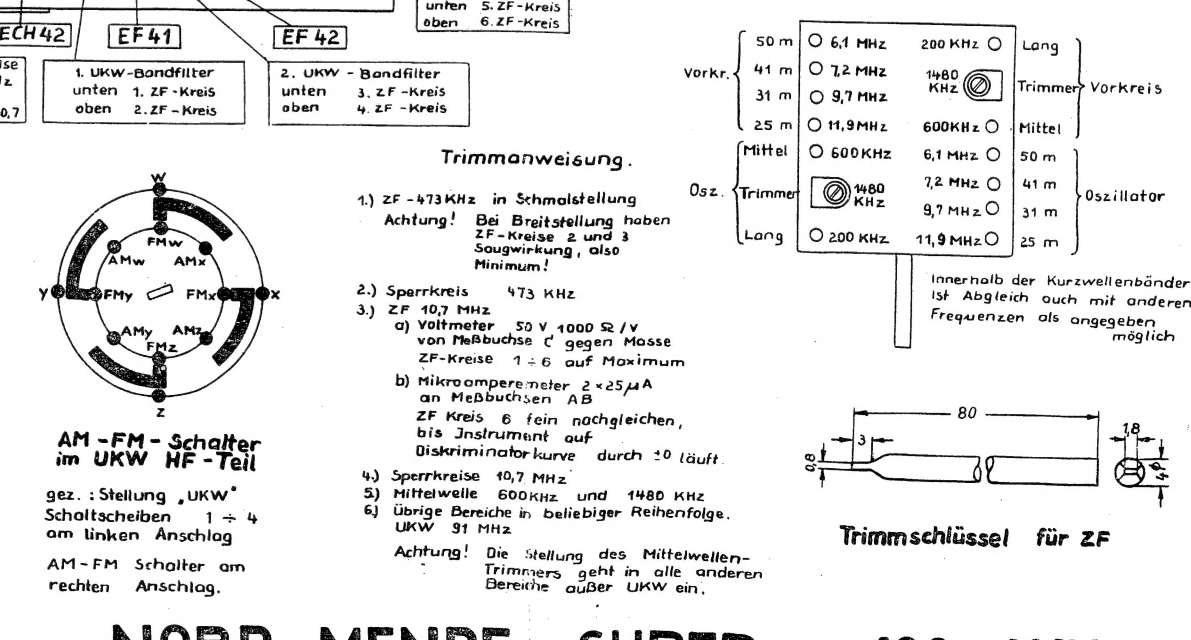 unten 5. ZF-Kreis
oben 6. ZF-Kreis
ECH 42
EF 41
EF 42
0,7
1. UKW-Bandfilter
unten 1. ZF-Kreis
oben 2. ZF-Kreis
2. UKW-Bandfilter
unten 3. ZF-Kreis
oben 4. ZF-Kreis
W
FMw
AMw AMx
y FMy FMx x
AMy AMz
FMz
z
AM-FM-Schalter
im UKW HF-Teil
gez.: Stellung „UKW"
Schaltscheiben 1 ÷ 4
am linken Anschlag
AM-FM Schalter am
rechten Anschlag.
Trimmanweisung.
1.) ZF-473 KHz in Schmalstellung
Achtung! Bei Breitstellung haben
ZF-Kreise 2 und 3
Saugwirkung, also
Minimum!
2.) Sperrkreis 473 KHz
3.) ZF 10,7 MHz
a) Voltmeter 50 V 1000 Ω/V
von Meßbuchse C gegen Masse
ZF-Kreise 1÷6 auf Maximum
b) Mikroamperemeter 2×25 µA
an Meßbuchsen AB
ZF Kreis 6 fein nachgleichen,
bis Instrument auf
Diskriminatorkurve durch ±0 läuft.
4.) Sperrkreise 10,7 MHz
5.) Mittelwelle 600 KHz und 1480 KHz
6.) übrige Bereiche in beliebiger Reihenfolge.
UKW 91 MHz
Achtung! Die Stellung des Mittelwellen-
Trimmers geht in alle anderen
Bereiche außer UKW ein.
Vorkr.
50 m 6,1 MHz 200 KHz Lang
41 m 7,2 MHz 1480 KHz Trimmer Vorkreis
31 m 9,7 MHz
25 m 11,9 MHz 600 KHz Mittel
Mittel 600 KHz 6,1 MHz 50 m
Osz. Trimmer 1480 KHz 7,2 MHz 41 m Oszillator
9,7 MHz 31 m
Lang 200 KHz 11,9 MHz 25 m
Innerhalb der Kurzwellenbänder
ist Abgleich auch mit anderen
Frequenzen als angegeben
möglich
80
3
0,8
1,8
4 φ
Trimmschlüssel für ZF